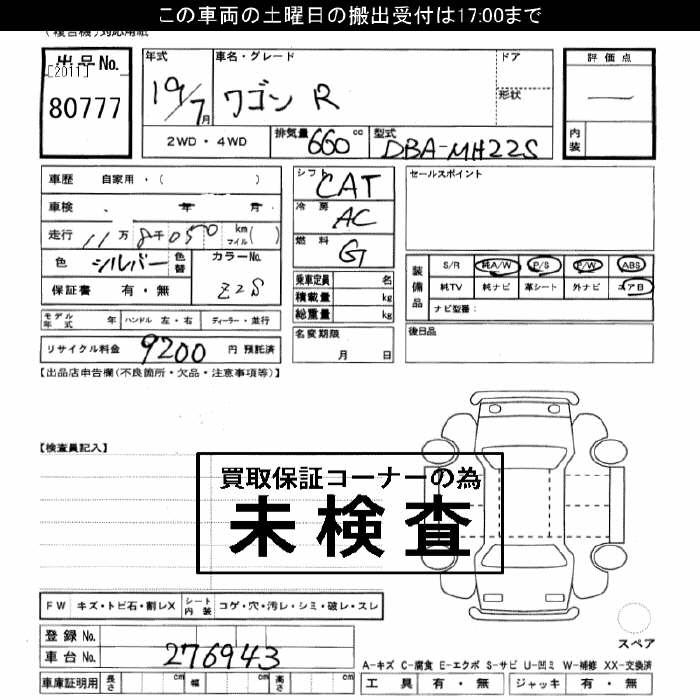 この車両の土曜日の搬出受付は17:00まで
出品No.
[2011]
80777
年式
19/7月
車名・グレード
ワゴン R
ドア
形状
評価点
—
内装
2WD・4WD
排気量 660 cc
型式 DBA-MH22S
車歴 自家用・( )
車検 年 月
走行 11万 8千050 km マイル( )
色 シルバー 色替
カラーNo. Z2S
保証書 有・無
シフト CAT
冷房 AC
燃料 G
乗車定員 名
積載量 kg
総重量 kg
名変期限
月 日
セールスポイント
装備品
S/R 純A/W P/S P/W ABS
純TV 純ナビ 革シート 外ナビ エアB
ナビ型番:
後日品
モデル年式 年 ハンドル 左・右 ディーラー・並行
リサイクル料金 9200 円 預託済
【出品店申告欄(不良箇所・欠品・注意事項等)】
【検査員記入】
買取保証コーナーの為
未検査
FW キズ・トビ石・割レX シート内装 コゲ・穴・汚レ・シミ・破レ・スレ
登録No.
車台No. 276943
車庫証明用 長さ cm 幅 cm 高さ cm
スペア
A-キズ C-腐食 E-エクボ S-サビ U-凹ミ W-補修 XX-交換済
工具 有・無 ジャッキ 有・無